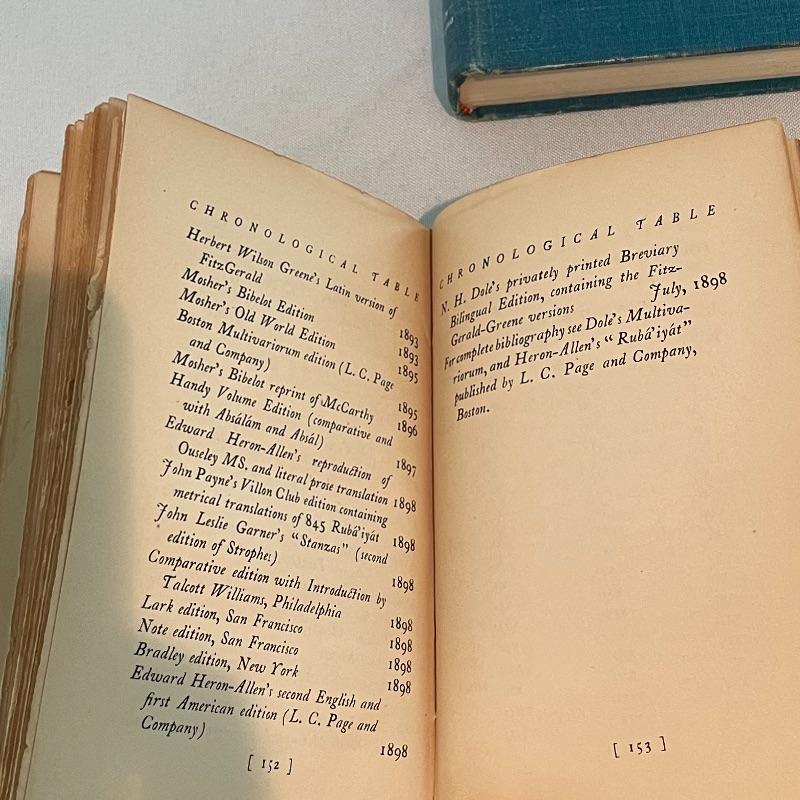 CHRONOLOGICAL TABLE
Herbert Wilson Greene's Latin version of
FitzGerald 1893
Mosher's Bibelot Edition 1893
Mosher's Old World Edition 1895
Boston Multivariorum edition (L. C. Page
and Company) 1895
Mosher's Bibelot reprint of McCarthy 1896
Handy Volume Edition (comparative and
with Absálám and Absál) 1897
Edward Heron-Allen's reproduction of
Ouseley MS. and literal prose translation 1898
John Payne's Villon Club edition containing
metrical translations of 845 Rubá'iyát 1898
John Leslie Garner's "Stanzas" (second
edition of Strophes) 1898
Comparative edition with Introduction by
Talcott Williams, Philadelphia 1898
Lark edition, San Francisco 1898
Note edition, San Francisco 1898
Bradley edition, New York 1898
Edward Heron-Allen's second English and
first American edition (L. C. Page and
Company) 1898
[ 152 ]
CHRONOLOGICAL TABLE
N. H. Dole's privately printed Breviary
Bilingual Edition, containing the Fitz-
Gerald-Greene versions July, 1898
For complete bibliography see Dole's Multiva-
riorum, and Heron-Allen's "Rubá'iyát"
published by L. C. Page and Company,
Boston.
[ 153 ]